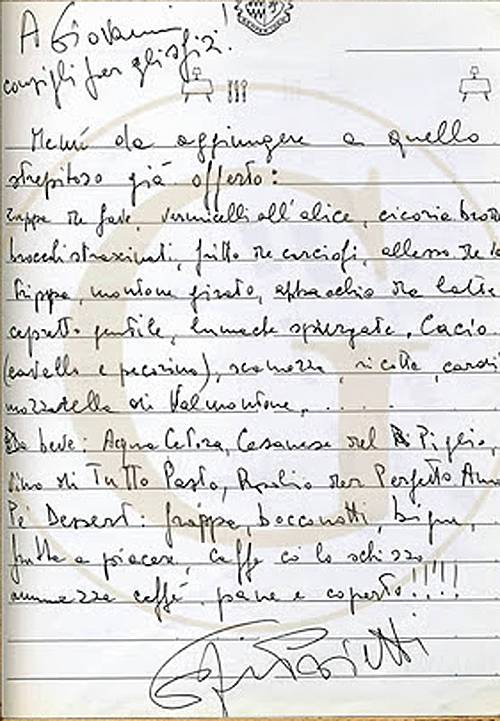 A Giovanni!
consigli per gli sfizi.
Menù da aggiungere a quello
strepitoso già offerto:
zuppa de fave, vermicelli all'alice, cicoria
broccoli strascinati, fritto de carciofi, allesso de
trippa, montone girato, abbacchio da latte
capretto gentile, lumache spurgate, Cacio
(cavallo e pecorino), scamozza, ricotta, cardi
mozzatella di Valmontone, . . . .
Da beve: Acqua Cetosa, Cesanese del Piglio,
Vino di Tutto Pasto, Rosolio der Perfetto
Pe' Dessert: frappe, bocconotti, bigne,
frutta a piacere, caffe co lo schizzo
ammazza caffé, pane e coperto!!!!